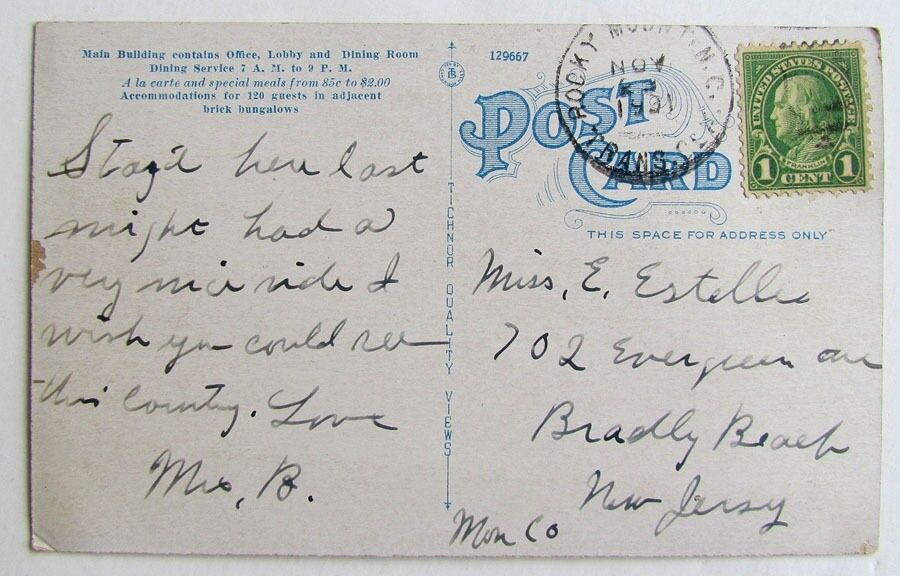 Main Building contains Office, Lobby and Dining Room
Dining Service 7 A. M. to 9 P. M.
A la carte and special meals from 85c to $2.00
Accommodations for 120 guests in adjacent
brick bungalows
Stay'd here last
night had a
very nice ride I
wish you could see
this Country. Love
Mrs, B.
TICHNOR QUALITY VIEWS
129667
POST CARD
THIS SPACE FOR ADDRESS ONLY
ROCKY MOUNT, N.C.
NOV
TRANS.
UNITED STATES POSTAGE
FRANKLIN
1 CENT 1
Miss, E. Estelle
702 Evergreen ave
Bradly Beach
New Jersy
Mon Co